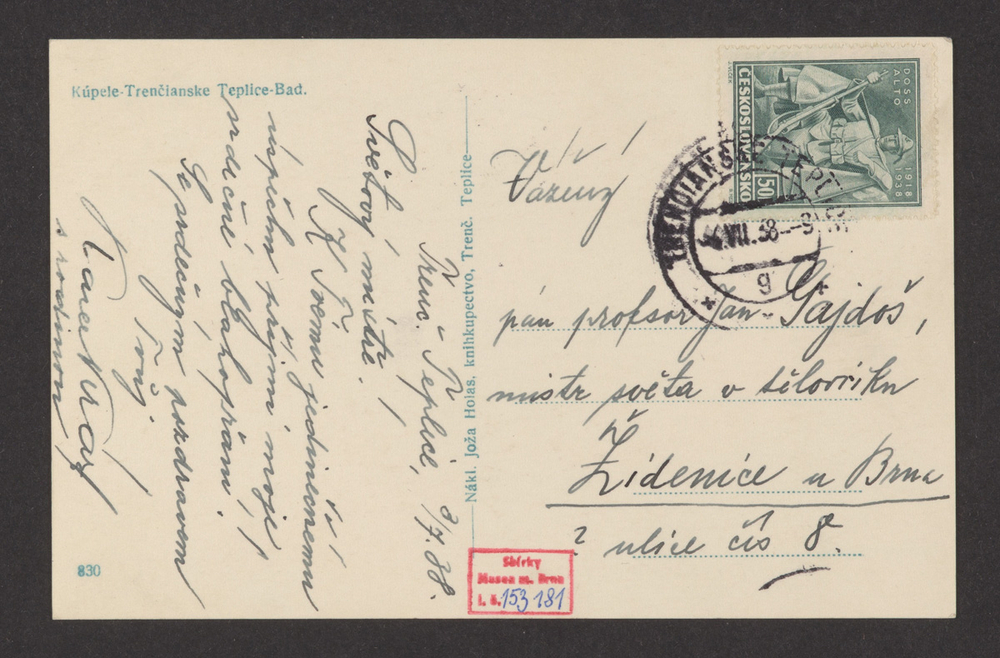 Kúpele-Trenčianske Teplice-Bad.
Tren. Teplice, 8/7.38.
Světový mistře!
K Tvému jedinečnému
úspěchu přijmi moje
srdečné blahopřání!
Se srdečným pozdravem
Tvůj
Karel
s rodinou
830
Nákl. Joža Holas, knihkupectvo, Trenč. Teplice
DOSS ALTO
1918 1938
ČESKOSLOVENSKO
50
TRENČIANSKE TEPLICE
VII.38
9
Vážený
pán profesor Jan Gajdoš,
mistr světa v tělocviku
Židenice u Brna
? ulice čís 8.
Sbírky
Musea m. Brna
i. č. 153 181